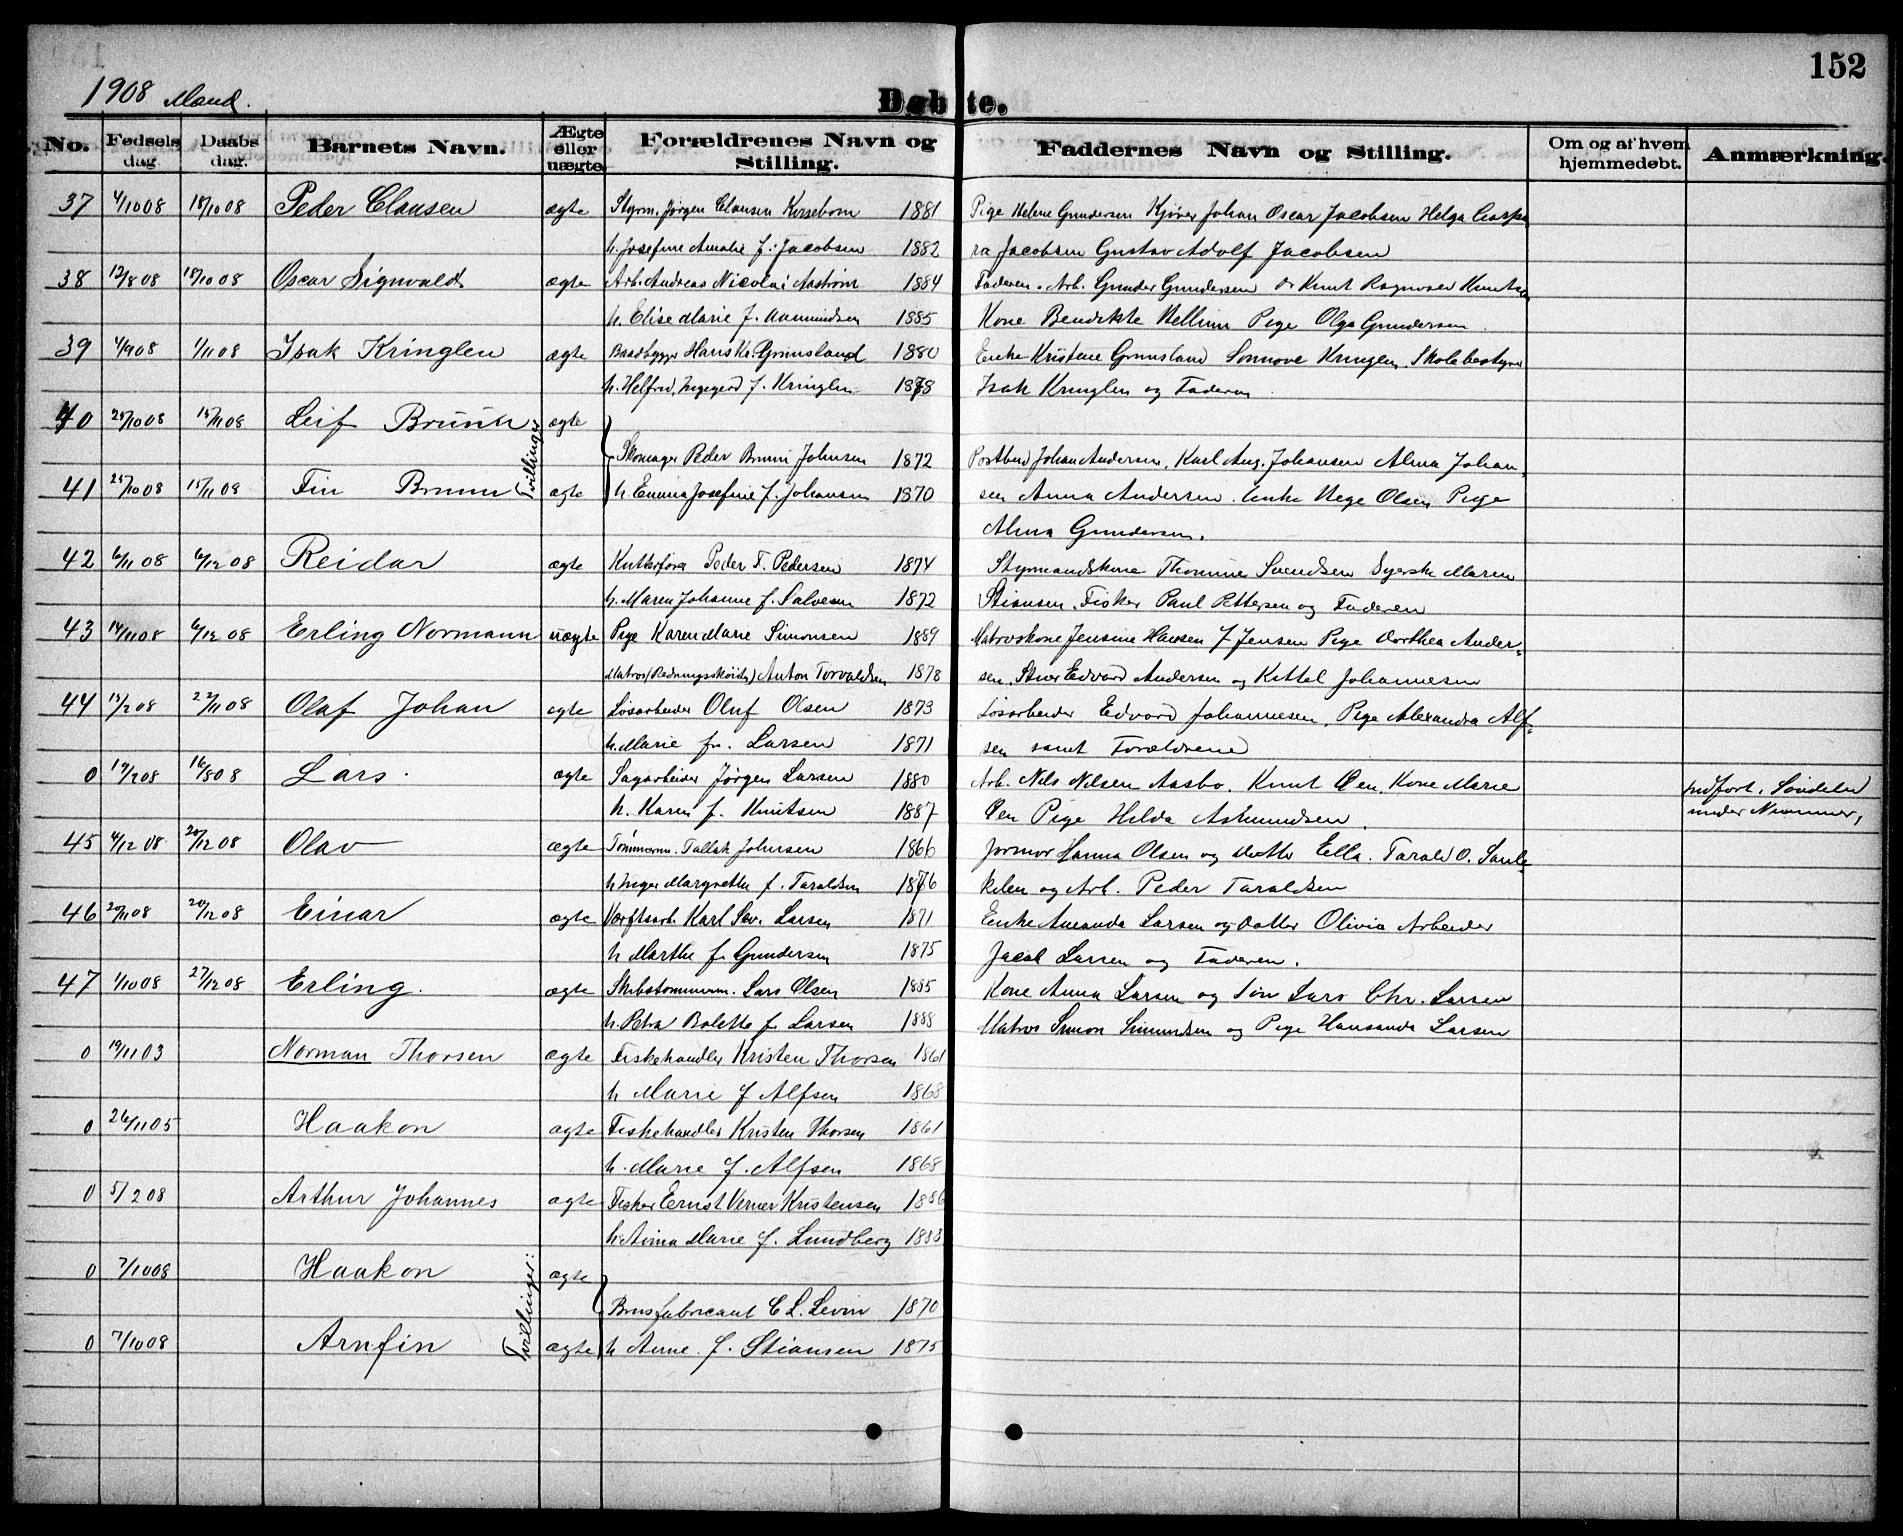 152
1908 Mand.
Døbte.
No. Fødsels dag. Daabs dag. Barnets Navn. Ægte eller uægte Forældrenes Navn og Stilling. Faddernes Navn og Stilling. Om og af hvem hjemmedøbt. Anmærkning.
37 4/10 08 18/10 08 Peder Clausen ægte Styrm. Jørgen Clausen 1881 Pige Helene Gundersen Johan Oscar Jacobsen Helga
h. Josefine Amalie f. Jacobsen 1882 Jacobsen Gustav Adolf Jacobsen
38 12/8 08 18/10 08 Oscar Signvald ægte Arb. Andreas Nicolai Aastrøm 1884 Faderen. Arb. Gunder Gundersen Knut
h. Elise Marie f. Aamundsen 1885 Kone Bendikte Pige Olga Gundersen
39 4/9 08 1/11 08 Isak Kringlen ægte Baadbygger Hans Kr. Grimsland 1880 Enke Kristine Grimsland Kringlen. Skolebestyrer
h. Helfrid Ingegerd f. Kringlen 1878 Isak Kringlen og Faderen
40 25/10 08 15/11 08 Leif Bruun ægte
Tvillinger
Skomager Peder Bruun Johnsen 1872 Postbud Johan Andersen, Karl Aug. Johansen Alma Johan-
41 25/10 08 15/11 08 Fin Bruun ægte h. Emma Josefine f. Johansen 1870 sen Anna Andersen. Enke Olsen Pige
Alma Gundersen.
42 6/11 08 6/12 08 Reidar ægte Kutterfører Peder F. Pedersen 1874 Styrmandskone Thomine Svendsen Syerske Maren
h. Maren Johanne f. Salvesen 1872 Stiansen. Fisker Paul Pettersen og Faderen
43 14/11 08 6/12 08 Erling Normann uægte Pige Karen Marie Simonsen 1889 Matroskone Jensine Hansen f Jensen Pige Dorthea Ander-
Matros (Redningsskøite) Anton Torvaldsen 1878 sen. Edvard Andersen og Kittel Johannesen
44 13/2 08 22/11 08 Olaf Johan ægte Løsarbeider Oluf Olsen 1873 Løsarbeider Edvard Johannesen, Pige Alexandra Alf-
h. Marie f. Larsen 1871 sen samt Forældrene
0 19/2 08 16/8 08 Lars. ægte Sagarbeider Jørgen Larsen 1880 Arb. Nils Nilsen Aasbo. Knut Øen. Kone Marie indført. Søndeled
h. Karen f. Knutsen 1887 Øen Pige Hilda Asmundsen. under Nummer,
45 4/12 08 20/12 08 Olav ægte Tømmerm. Tallak Johnsen 1866 Jormor Hanna Olsen og Datter Ella. Tarald O.
h. Inger Margrethe f. Taraldsen 1876 og Arb. Peder Taraldsen
46 20/11 08 20/12 08 Einar ægte Værftsarb. Karl Sev. Larsen 1871 Enke Amanda Larsen og Datter Olivia Arbeider
h Marthe f. Gundersen 1875 Jacob Larsen og Faderen.
47 1/10 08 27/12 08 Erling. ægte Skibstømmerm. Lars Olsen 1885 Kone Anna Larsen og Søn Lars Chr. Larsen
h. Petra Bolette f. Larsen 1888 Matros Simon Simundsen og Pige Hansande Larsen
0 19/11 03 Norman Thorsen ægte Fiskehandler Kristen Thorsen 1861
h Marie f Alfsen 1868
0 26/11 05 Haakon ægte Fiskehandler Kristen Thorsen 1861
h. Marie f. Alfsen 1868
0 5/2 08 Arthur Johannes ægte Fisker Ernst Verner Kristensen 1886
h. Anna Marie f. Lundberg 1883
0 7/10 08 Haakon ægte
Tvillinger:
Brusfabricant C L. Levin 1870
0 7/10 08 Arnfin ægte h Anne f. Stiansen 1875